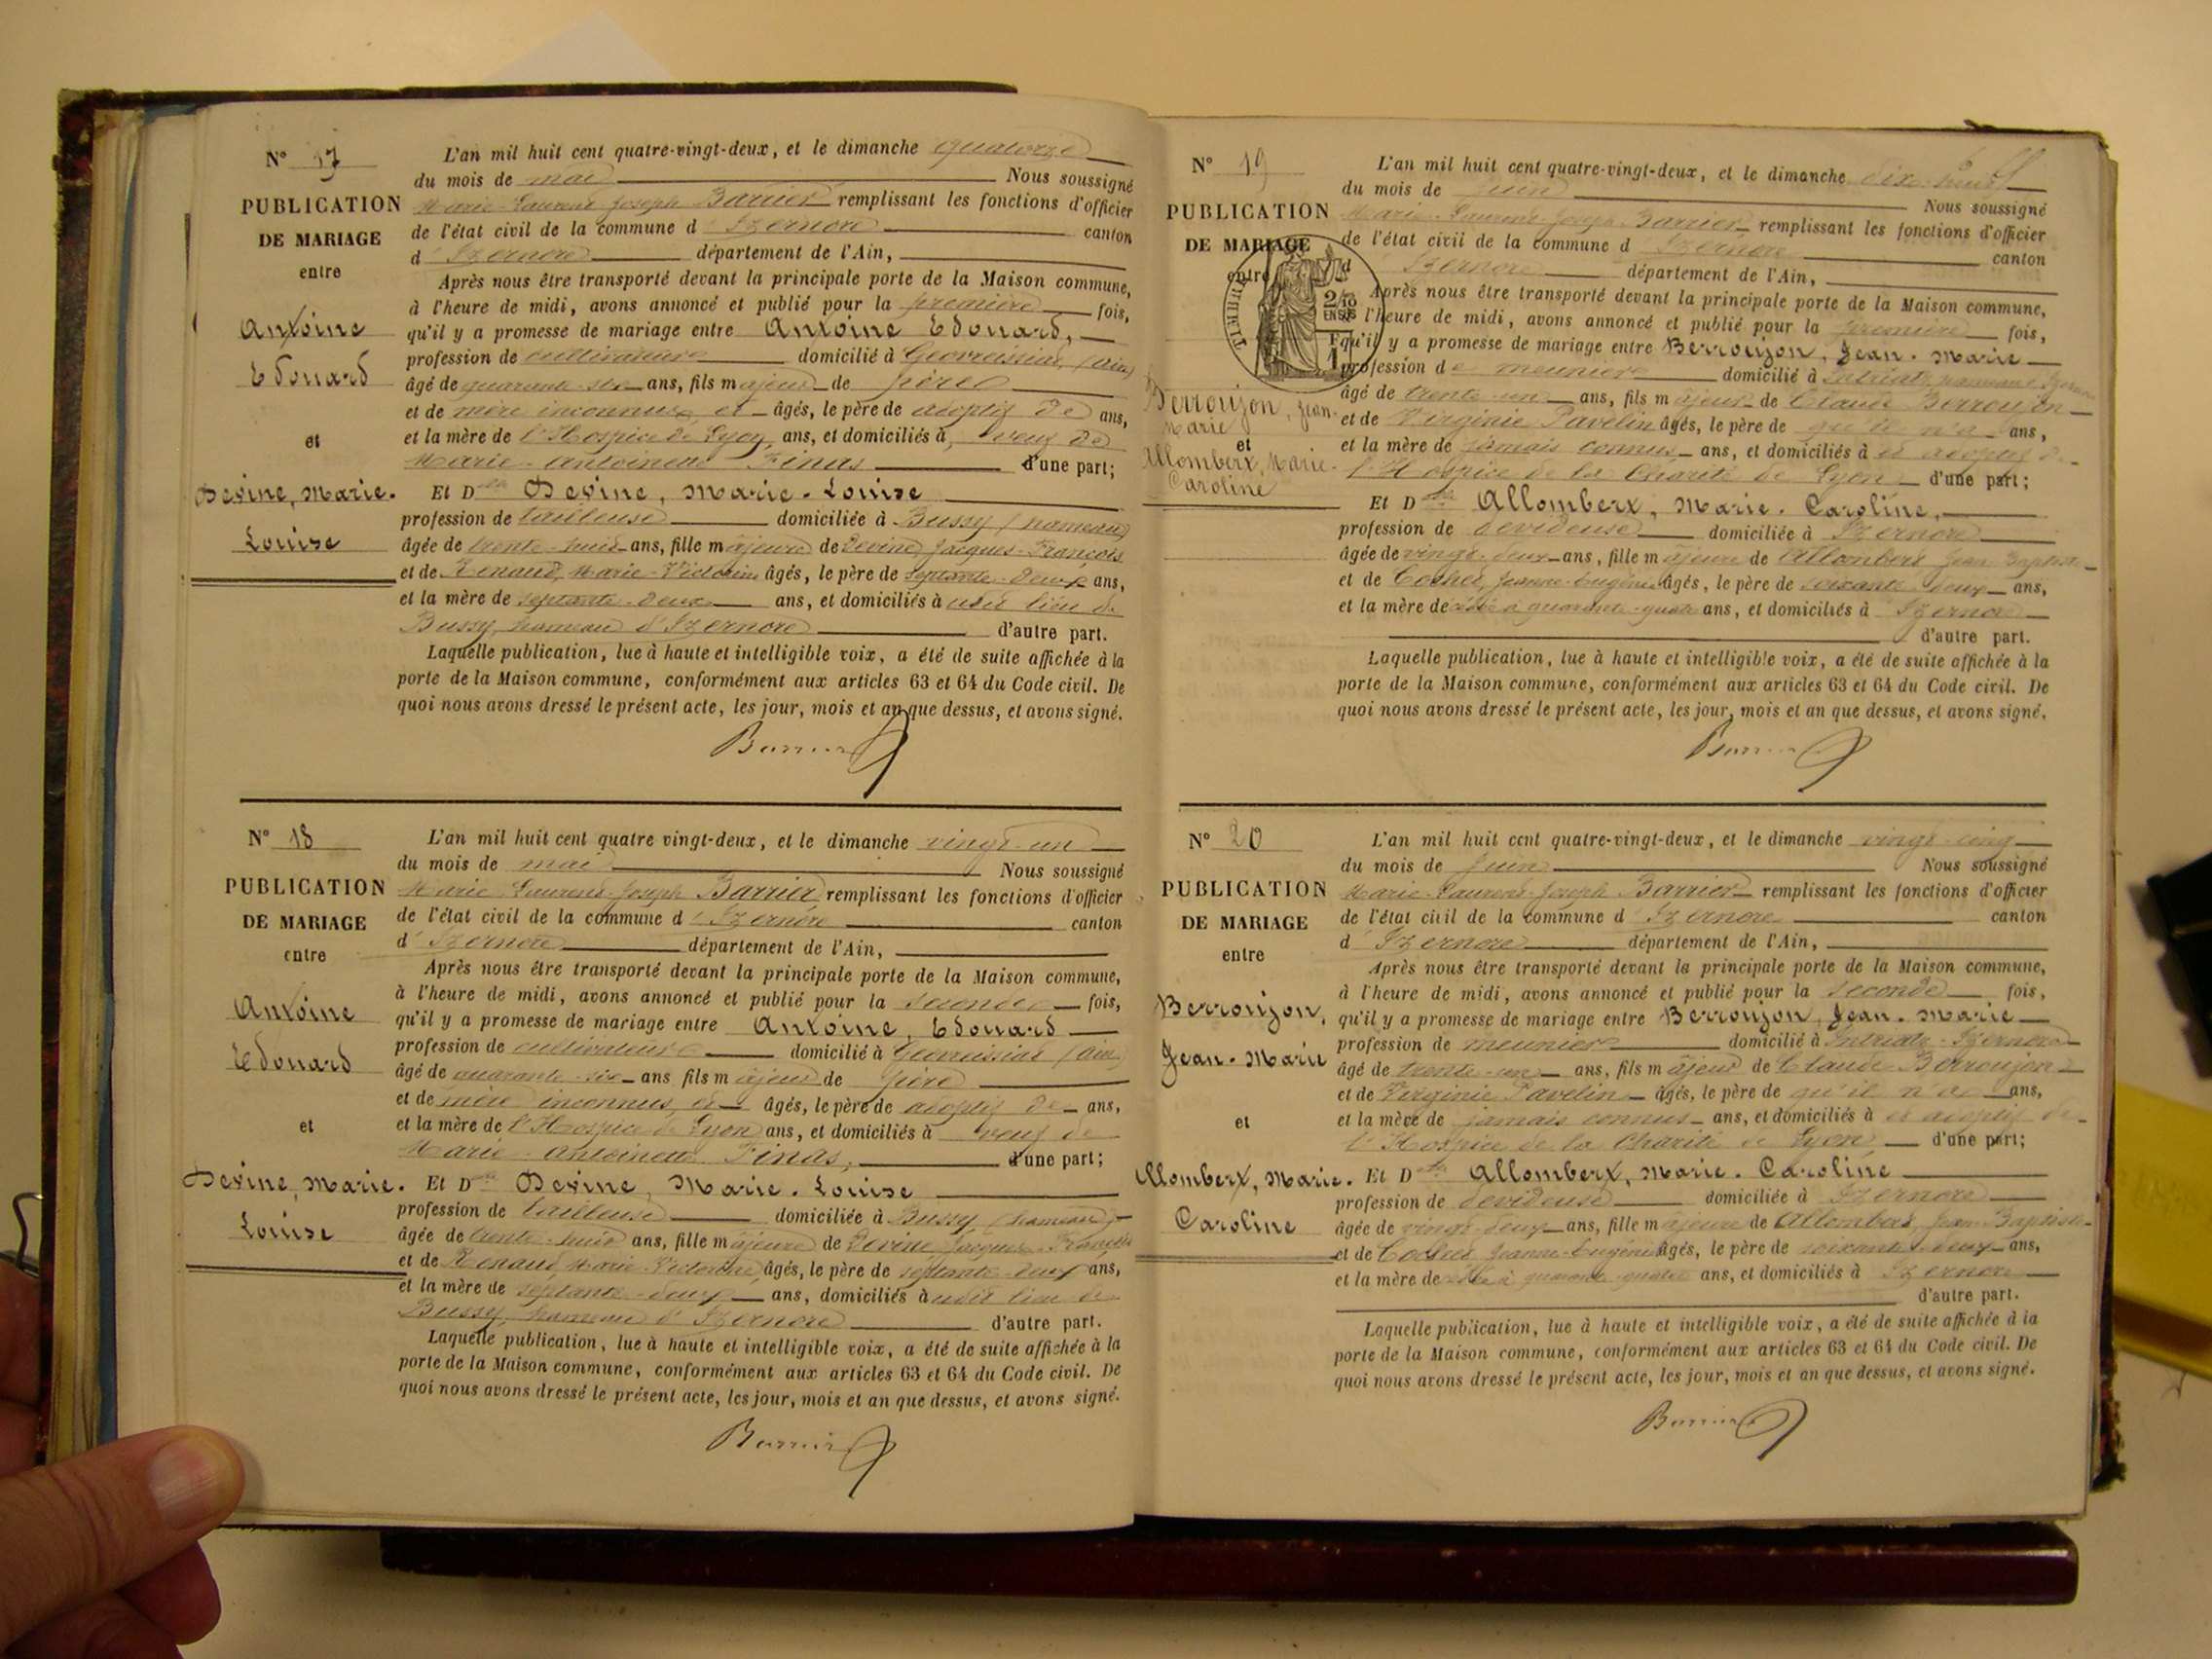 N° 17
PUBLICATION
DE MARIAGE
entre
Antoine
Edouard
et
Devine, Marie-
Louise
L'an mil huit cent quatre-vingt-deux, et le dimanche quatorze
du mois de mai Nous soussigné
Marie-Laurent-Joseph Barrier remplissant les fonctions d'officier
de l'état civil de la commune d'Izernore canton
d'Izernore département de l'Ain,
Après nous être transporté devant la principale porte de la Maison commune,
à l'heure de midi, avons annoncé et publié pour la première fois,
qu'il y a promesse de mariage entre Antoine Edouard,
profession de cultivateur domicilié à Géovreissiat, (Ain)
âgé de quarante-six ans, fils majeur de père
et de mère inconnus, et âgés, le père de adoptif de ans,
et la mère de l'Hospice de Lyon, ans, et domiciliés à, veuf de
Marie-Antoinette Finas d'une part;
Et Dlle Devine, Marie-Louise
profession de tailleuse domiciliée à Bussy (hameau)
âgée de trente-huit ans, fille majeure de Devine Jacques-François
et de Renaud, Marie-Victorine âgés, le père de septante-deux ans,
et la mère de septante-deux ans, et domiciliés à udit lieu de
Bussy, hameau d'Izernore d'autre part.
Laquelle publication, lue à haute et intelligible voix, a été de suite affichée à la
porte de la Maison commune, conformément aux articles 63 et 64 du Code civil. De
quoi nous avons dressé le présent acte, les jour, mois et an que dessus, et avons signé.
Barrier
N° 18
PUBLICATION
DE MARIAGE
entre
Antoine
Edouard
et
Devine, Marie-
Louise
L'an mil huit cent quatre vingt-deux, et le dimanche vingt-un
du mois de mai Nous soussigné
Marie-Laurent-Joseph Barrier remplissant les fonctions d'officier
de l'état civil de la commune d'Izernore canton
d'Izernore département de l'Ain,
Après nous être transporté devant la principale porte de la Maison commune,
à l'heure de midi, avons annoncé et publié pour la seconde fois,
qu'il y a promesse de mariage entre Antoine, Edouard
profession de cultivateur domicilié à Géovreissiat (Ain)
âgé de quarante-six ans fils majeur de père
et de mère inconnus, et âgés, le père de adoptif de ans,
et la mère de l'Hospice de Lyon ans, et domiciliés à veuf de
Marie-Antoinette Finas, d'une part;
Et Dlle Devine, Marie-Louise
profession de tailleuse domiciliée à Bussy (hameau)
âgée de trente-huit ans, fille majeure de Devine Jacques-François
et de Renaud, Marie-Victorine âgés, le père de septante-deux ans,
et la mère de septante-deux ans, domiciliés à udit lieu de
Bussy, hameau d'Izernore d'autre part.
Laquelle publication, lue à haute et intelligible voix, a été de suite affichée à la
porte de la Maison commune, conformément aux articles 63 et 64 du Code civil. De
quoi nous avons dressé le présent acte, les jour, mois et an que dessus, et avons signé.
Barrier
N° 19
PUBLICATION
DE MARIAGE
entre
TIMBRE
Berroujon, Jean-
Marie
et
Allombert, Marie-
Caroline
L'an mil huit cent quatre-vingt-deux, et le dimanche dix-huit
du mois de juin Nous soussigné
Marie-Laurent-Joseph Barrier remplissant les fonctions d'officier
de l'état civil de la commune d'Izernore canton
d'Izernore département de l'Ain,
Après nous être transporté devant la principale porte de la Maison commune,
à l'heure de midi, avons annoncé et publié pour la première fois,
qu'il y a promesse de mariage entre Berroujon, Jean-Marie
profession de meunier domicilié à Intriat, hameau
âgé de trente-un ans, fils majeur de Claude Berroujon
et de Virginie Pavelin âgés, le père de qu'il n'a ans,
et la mère de jamais connus ans, et domiciliés à et adoptif de
l'Hospice de la Charité de Lyon d'une part;
Et Dlle Allombert, Marie-Caroline,
profession de dévideuse domiciliée à Izernore
âgée de vingt-deux ans, fille majeure de Allombert Jean-Baptiste
et de Cochet, Jeanne-Eugénie âgés, le père de soixante-deux ans,
et la mère de à quarante-quatre ans, et domiciliés à Izernore
d'autre part.
Laquelle publication, lue à haute et intelligible voix, a été de suite affichée à la
porte de la Maison commune, conformément aux articles 63 et 64 du Code civil. De
quoi nous avons dressé le présent acte, les jour, mois et an que dessus, et avons signé.
Barrier
N° 20
PUBLICATION
DE MARIAGE
entre
Berroujon,
Jean-Marie
et
Allombert, Marie-
Caroline
L'an mil huit cent quatre-vingt-deux, et le dimanche vingt-cinq
du mois de juin Nous soussigné
Marie-Laurent-Joseph Barrier remplissant les fonctions d'officier
de l'état civil de la commune d'Izernore canton
d'Izernore département de l'Ain,
Après nous être transporté devant la principale porte de la Maison commune,
à l'heure de midi, avons annoncé et publié pour la seconde fois,
qu'il y a promesse de mariage entre Berroujon, Jean-Marie
profession de meunier domicilié à Intriat-Izernore
âgé de trente-un ans, fils majeur de Claude Berroujon
et de Virginie Pavelin âgés, le père de qu'il n'a ans,
et la mère de jamais connus ans, et domiciliés à et adoptif de
l'Hospice de la Charité de Lyon d'une part;
Et Dlle Allombert, Marie-Caroline
profession de dévideuse domiciliée à Izernore
âgée de vingt-deux ans, fille majeure de Allombert Jean-Baptiste
et de Cochet Jeanne-Eugénie âgés, le père de soixante-deux ans,
et la mère de à quarante-quatre ans, et domiciliés à Izernore
d'autre part.
Laquelle publication, lue à haute et intelligible voix, a été de suite affichée à la
porte de la Maison commune, conformément aux articles 63 et 64 du Code civil. De
quoi nous avons dressé le présent acte, les jour, mois et an que dessus, et avons signé.
Barrier